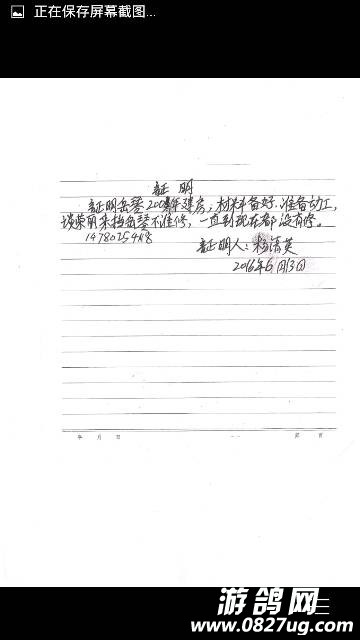 正在保存屏幕截图...
证明
证明岳琴2008年建房，材料备好.准备动工，
荣丽来挡岳琴不准修，一直到现在都没有修。
证明人：杨清英
2016年6月13日
年 月 日
第 页
游鸽网
www.0827ug.com